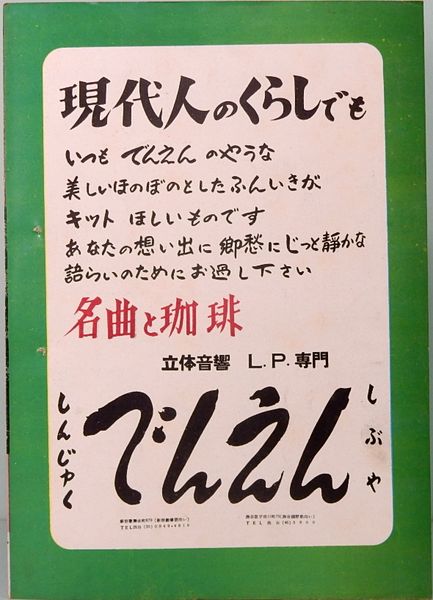 現代人のくらしでも
いつも でんえん のやうな
美しいほのぼのとしたふんいきが
キット ほしいものです
あなたの想い出に 郷愁に じっと靜かな
語らいのためにお過し下さい
名曲と珈琲
立体音響 L.P.専門
しんじゅく
でんえん
しぶや
TEL
TEL